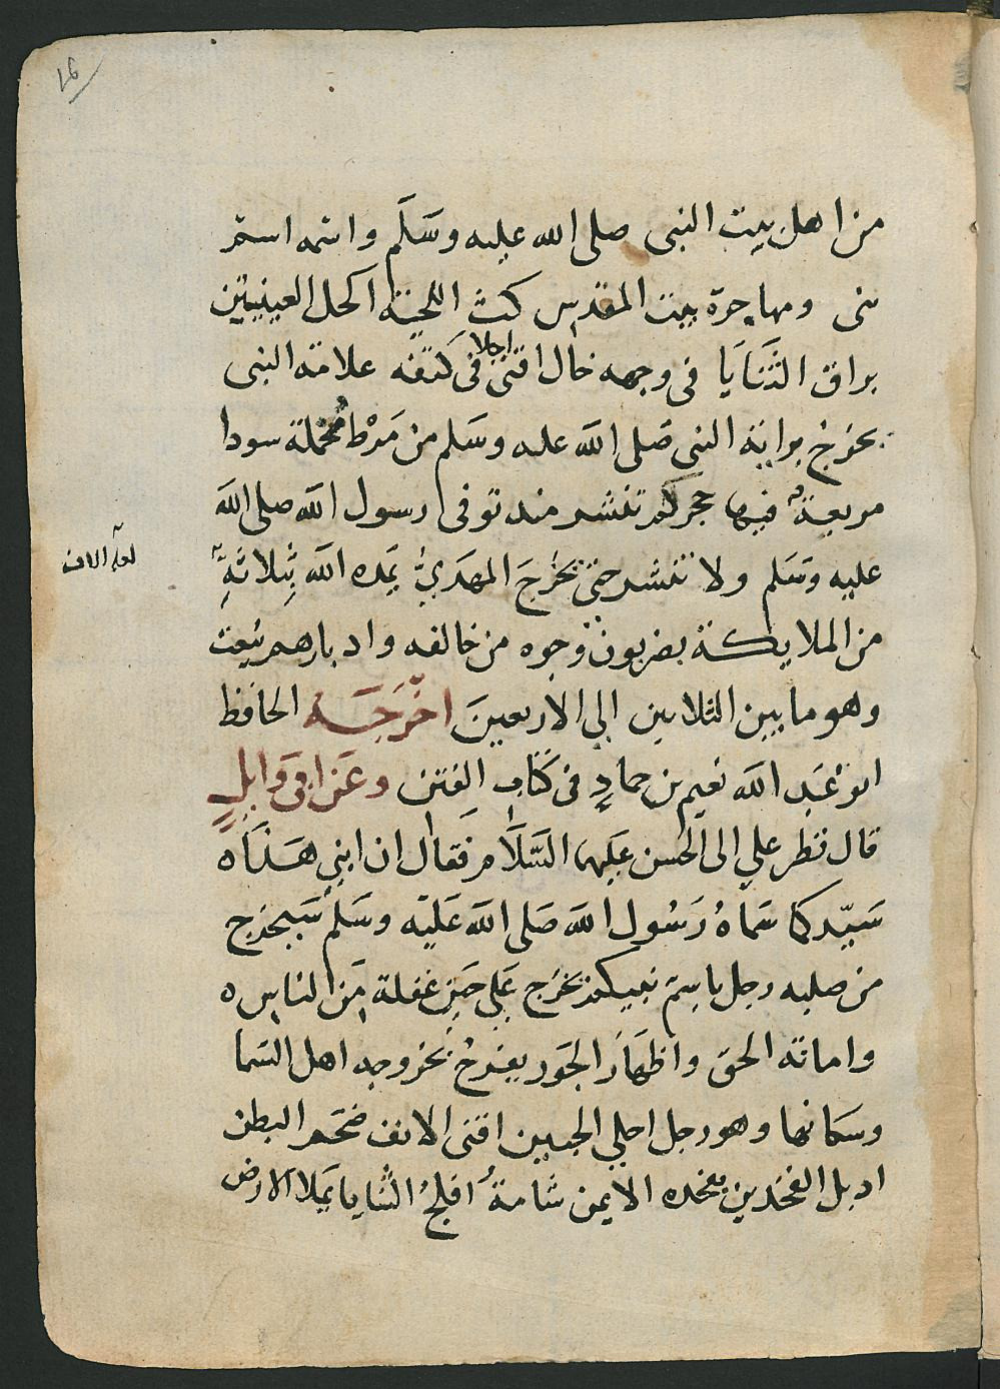 من اهل بيت النبى صلى الله عليه وسَلَّم واسمه اسم
نبى ومهاجره بيت المقدس كث اللحية اكحل العينيين
براق الثَّنَايَا فى وجهه خال اقنى اجلا فى كتفه علامة النبى
يخرج براية النبى صَلى الله عليه وسَلم من مَرْط مخملة سودا
مربعة فيها حجر لم تنشر منذ توفى رسول الله صلى الله
عليه وسَلم ولا تنشر حتى يخرُجَ المهدىُّ يَمده الله بِثلاثةِ
لعله الاف
من الملايكة يضربون وجوه من خالفه وادبارهم يبعث
وهو ما بين الثلاثين الى الاربعينَ اخْرَجَه الحافظ
ابو عَبد الله نعيم بن حمادٍ فى كتاب الفتن وعَن ابى وَايلٍ
قال نظر علي الى الحسن عَليهما السَّلَام فقال ان ابني هَذَا ه
سَيّد كما سَمَاهُ رَسُول الله صَلى الله عَليه وسَلم سَيخرج
من صلبه رجل باسم نبيكم يخرج عَلى حين غفلة مِن الناس ه
واماتة الحق واظهَار الجَور يفرحُ بخروجه اهل السَما
وسكانها وهو رجل اجلي الجبين اقنى الانف ضخم البطن
اديل الفخذين بفخده الايمن شامةُ افلجُ الثنايا يَملا الارض